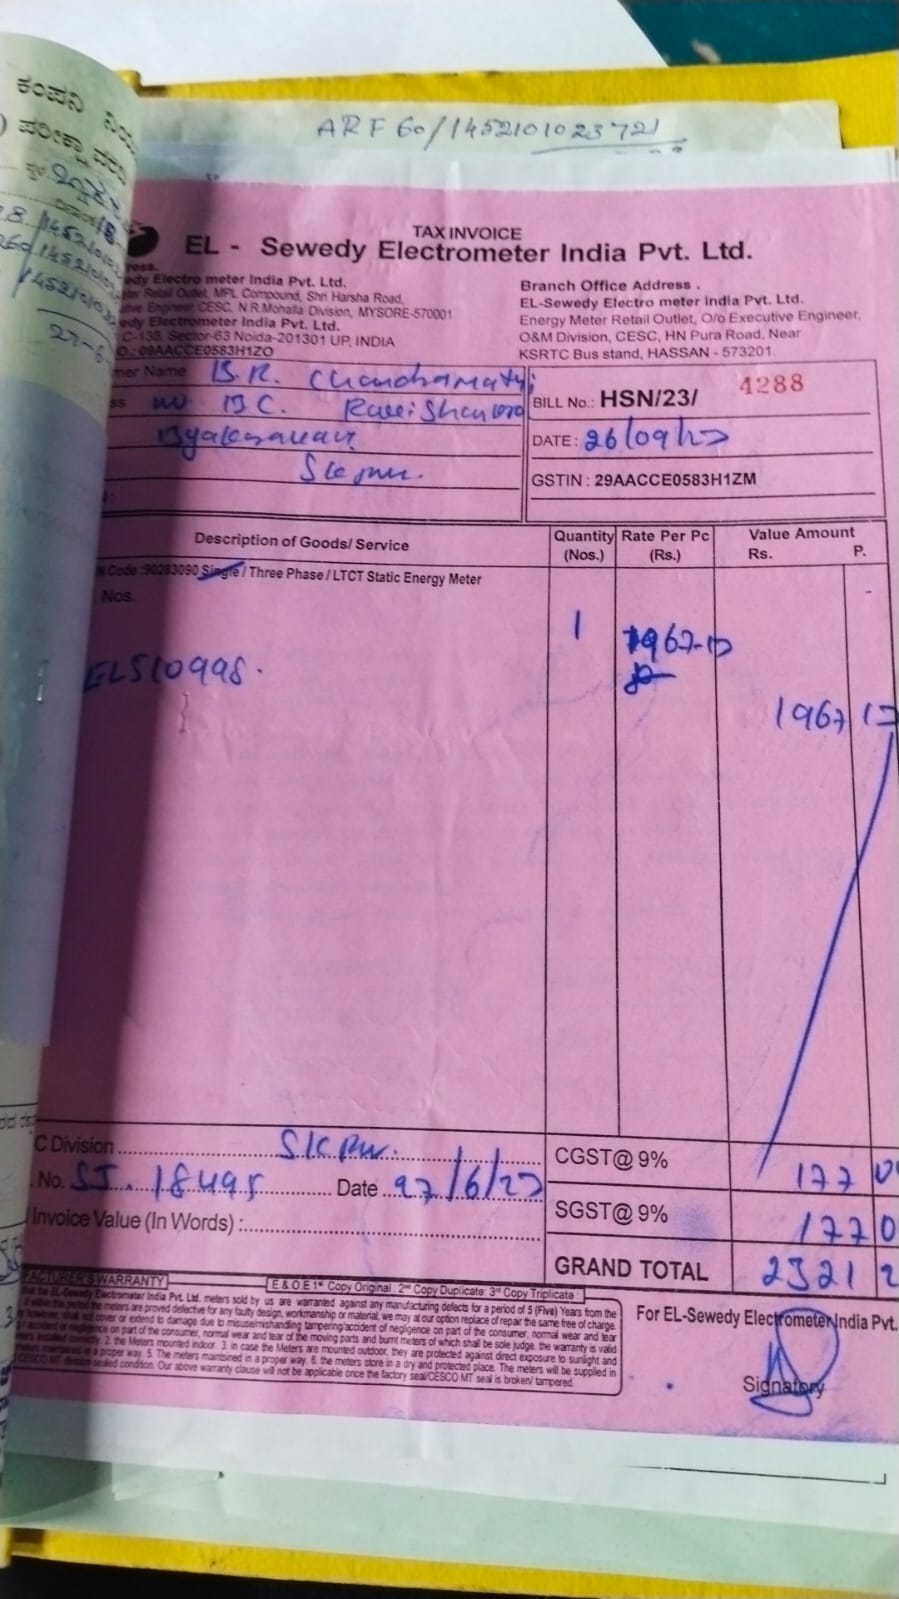 ARF 60/1452101023721
ಕಂಪನಿ
TAX INVOICE
EL - Sewedy Electrometer India Pvt. Ltd.
edy Electro meter India Pvt. Ltd.
Retail Outlet, MPL Compound, Shri Harsha Road,
tive Engineer CESC, N.R.Mohalla Division, MYSORE-570001
edy Electrometer India Pvt. Ltd.
C-138, Sector-63 Noida-201301 UP, INDIA
O.: 09AACCE0583H1ZO
Branch Office Address .
EL-Sewedy Electro meter India Pvt. Ltd.
Energy Meter Retail Outlet, O/o Executive Engineer,
O&M Division, CESC, HN Pura Road, Near
KSRTC Bus stand, HASSAN - 573201.
mer Name B.R. Chandramathi
ss
BILL No.: HSN/23/ 4288
DATE : 26/09/23
GSTIN : 29AACCE0583H1ZM
Description of Goods/ Service
Quantity (Nos.)
Rate Per Pc (Rs.)
Value Amount
Rs. P.
Code :90283090 Single / Three Phase / LTCT Static Energy Meter
Nos.
1
1967-17
ELS10998.
1967 17
C Division SKPur.
No. SJ. 18495 Date 27/6/23
Invoice Value (In Words) :
CGST@ 9% 177
SGST@ 9% 177 0
GRAND TOTAL 2321 2
FACTURER'S WARRANTY
E & O.E 1st Copy Original : 2nd Copy Duplicate: 3rd Copy Triplicate :
the EL-Sewedy Electrometer India Pvt. Ltd. meters sold by us are warranted against any manufacturing defects for a period of 5 (Five) Years from the
if within this period the meters are proved defective for any faulty design, workmanship or material, we may at our option replace of repair the same free of charge.
cover or extend to damage due to misuse/mishandling tampering/accident of negligence on part of the consumer, normal wear and tear
on part of the consumer, normal wear and tear of the moving parts and burnt meters of which shall be sole judge. the warranty is valid
2. the Meters mounted indoor. 3. in case the Meters are mounted outdoor, they are protected against direct exposure to sunlight and
maintained in a proper way. 5. The meters maintained in a proper way. 6. the meters store in a dry and protected place. The meters will be supplied in
CESCO MT sealed condition. Our above warranty clause will not be applicable once the factory seal/CESCO MT seal is broken/ tampered.
For EL-Sewedy Electrometer India Pvt.
Signatory